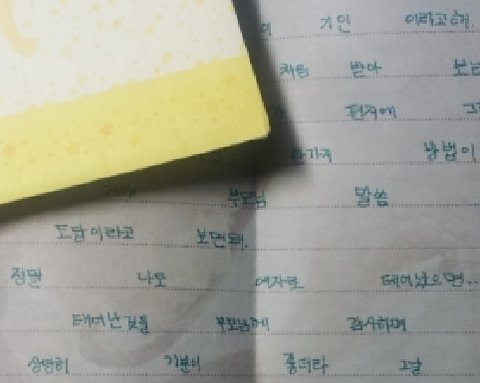 기인 이라고해.
처음 받아 보는
편지에
한가지 방법이
부모님 말씀
도답이라고 보면돼.
정말 나도 여자로 태어났으면..
태어난것을 부모님께 감사하며
상당히 기분이 좋더라 그날